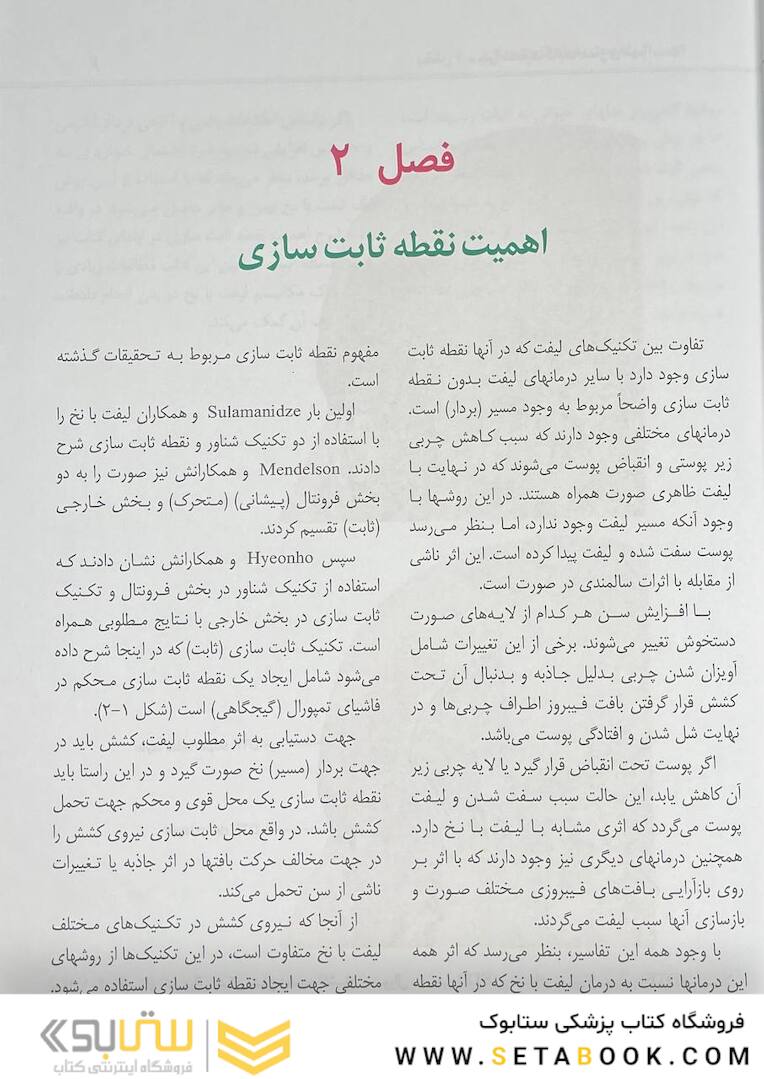 فصل ۲
اهمیت نقطه ثابت سازی
تفاوت بین تکنیک‌های لیفت که در آنها نقطه ثابت
سازی وجود دارد با سایر درمانهای لیفت بدون نقطه
ثابت سازی واضحاً مربوط به وجود مسیر (بردار) است.
درمانهای مختلفی وجود دارند که سبب کاهش چربی
زیر پوستی و انقباض پوست می‌شوند که در نهایت با
لیفت ظاهری صورت همراه هستند. در این روشها با
وجود آنکه مسیر لیفت وجود ندارد، اما بنظر می‌رسد
پوست سفت شده و لیفت پیدا کرده است. این اثر ناشی
از مقابله با اثرات سالمندی در صورت است.
با افزایش سن هر کدام از لایه‌های صورت
دستخوش تغییر می‌شوند. برخی از این تغییرات شامل
آویزان شدن چربی بدلیل جاذبه و بدنبال آن تحت
کشش قرار گرفتن بافت فیبروز اطراف چربی‌ها و در
نهایت شل شدن و افتادگی پوست می‌باشد.
اگر پوست تحت انقباض قرار گیرد یا لایه چربی زیر
آن کاهش یابد، این حالت سبب سفت شدن و لیفت
پوست می‌گردد که اثری مشابه با لیفت با نخ دارد.
همچنین درمانهای دیگری نیز وجود دارند که با اثر بر
روی بازآرایی بافت‌های فیبروزی مختلف صورت و
بازسازی آنها سبب لیفت می‌گردند.
با وجود همه این تفاسیر، بنظر می‌رسد که اثر همه
این درمانها نسبت به درمان لیفت با نخ که در آنها نقطه
مفهوم نقطه ثابت سازی مربوط به تحقیقات گذشته
است.
اولین بار Sulamanidze و همکاران لیفت با نخ را
با استفاده از دو تکنیک شناور و نقطه ثابت سازی شرح
دادند. Mendelson و همکارانش نیز صورت را به دو
بخش فرونتال (پیشانی) (متحرک) و بخش خارجی
(ثابت) تقسیم کردند.
سپس Hyeonho و همکارانش نشان دادند که
استفاده از تکنیک شناور در بخش فرونتال و تکنیک
ثابت سازی در بخش خارجی با نتایج مطلوبی همراه
است. تکنیک ثابت سازی (ثابت) که در اینجا شرح داده
می‌شود شامل ایجاد یک نقطه ثابت سازی محکم در
فاشیای تمپورال (گیجگاهی) است (شکل ۱-۲).
جهت دستیابی به اثر مطلوب لیفت، کشش باید در
جهت بردار (مسیر) نخ صورت گیرد و در این راستا باید
نقطه ثابت سازی یک محل قوی و محکم جهت تحمل
کشش باشد. در واقع محل ثابت سازی نیروی کشش را
در جهت مخالف حرکت بافتها در اثر جاذبه یا تغییرات
ناشی از سن تحمل می‌کند.
از آنجا که نیروی کشش در تکنیک‌های مختلف
لیفت با نخ متفاوت است، در این تکنیک‌ها از روشهای
مختلفی جهت ایجاد نقطه ثابت سازی استفاده می‌شود.
فروشگاه کتاب پزشکی ستابوک
WWW.SETABOOK.COM
ستابوک
فروشگاه اینترنتی کتاب